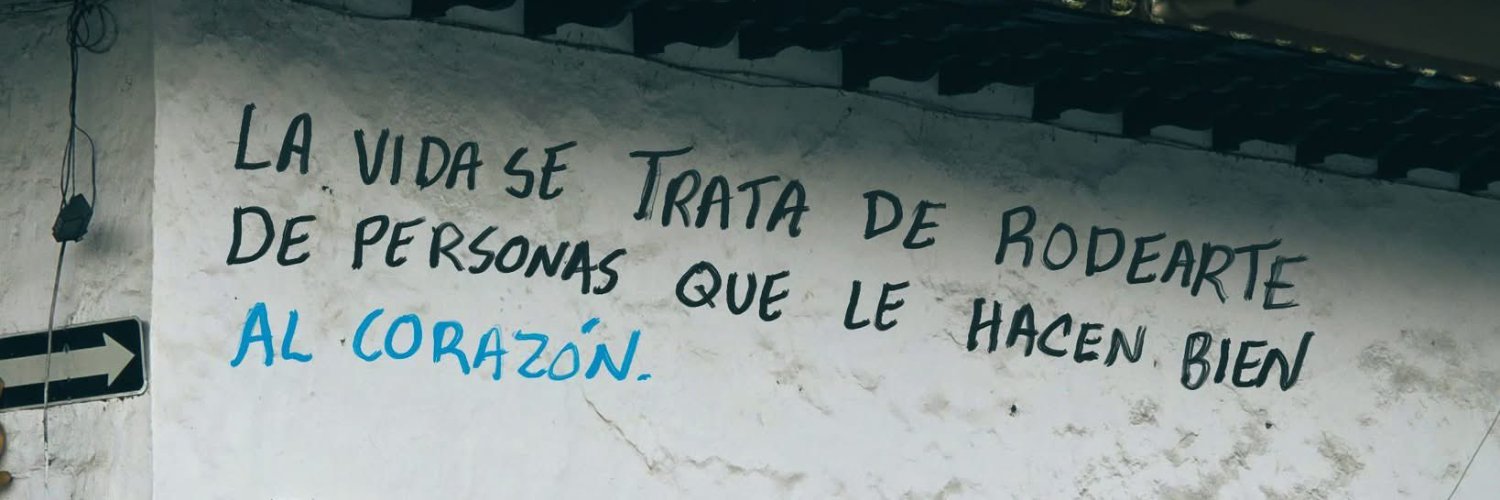 LA VIDA SE TRATA DE RODEARTE
DE PERSONAS QUE LE HACEN BIEN
AL CORAZÓN.